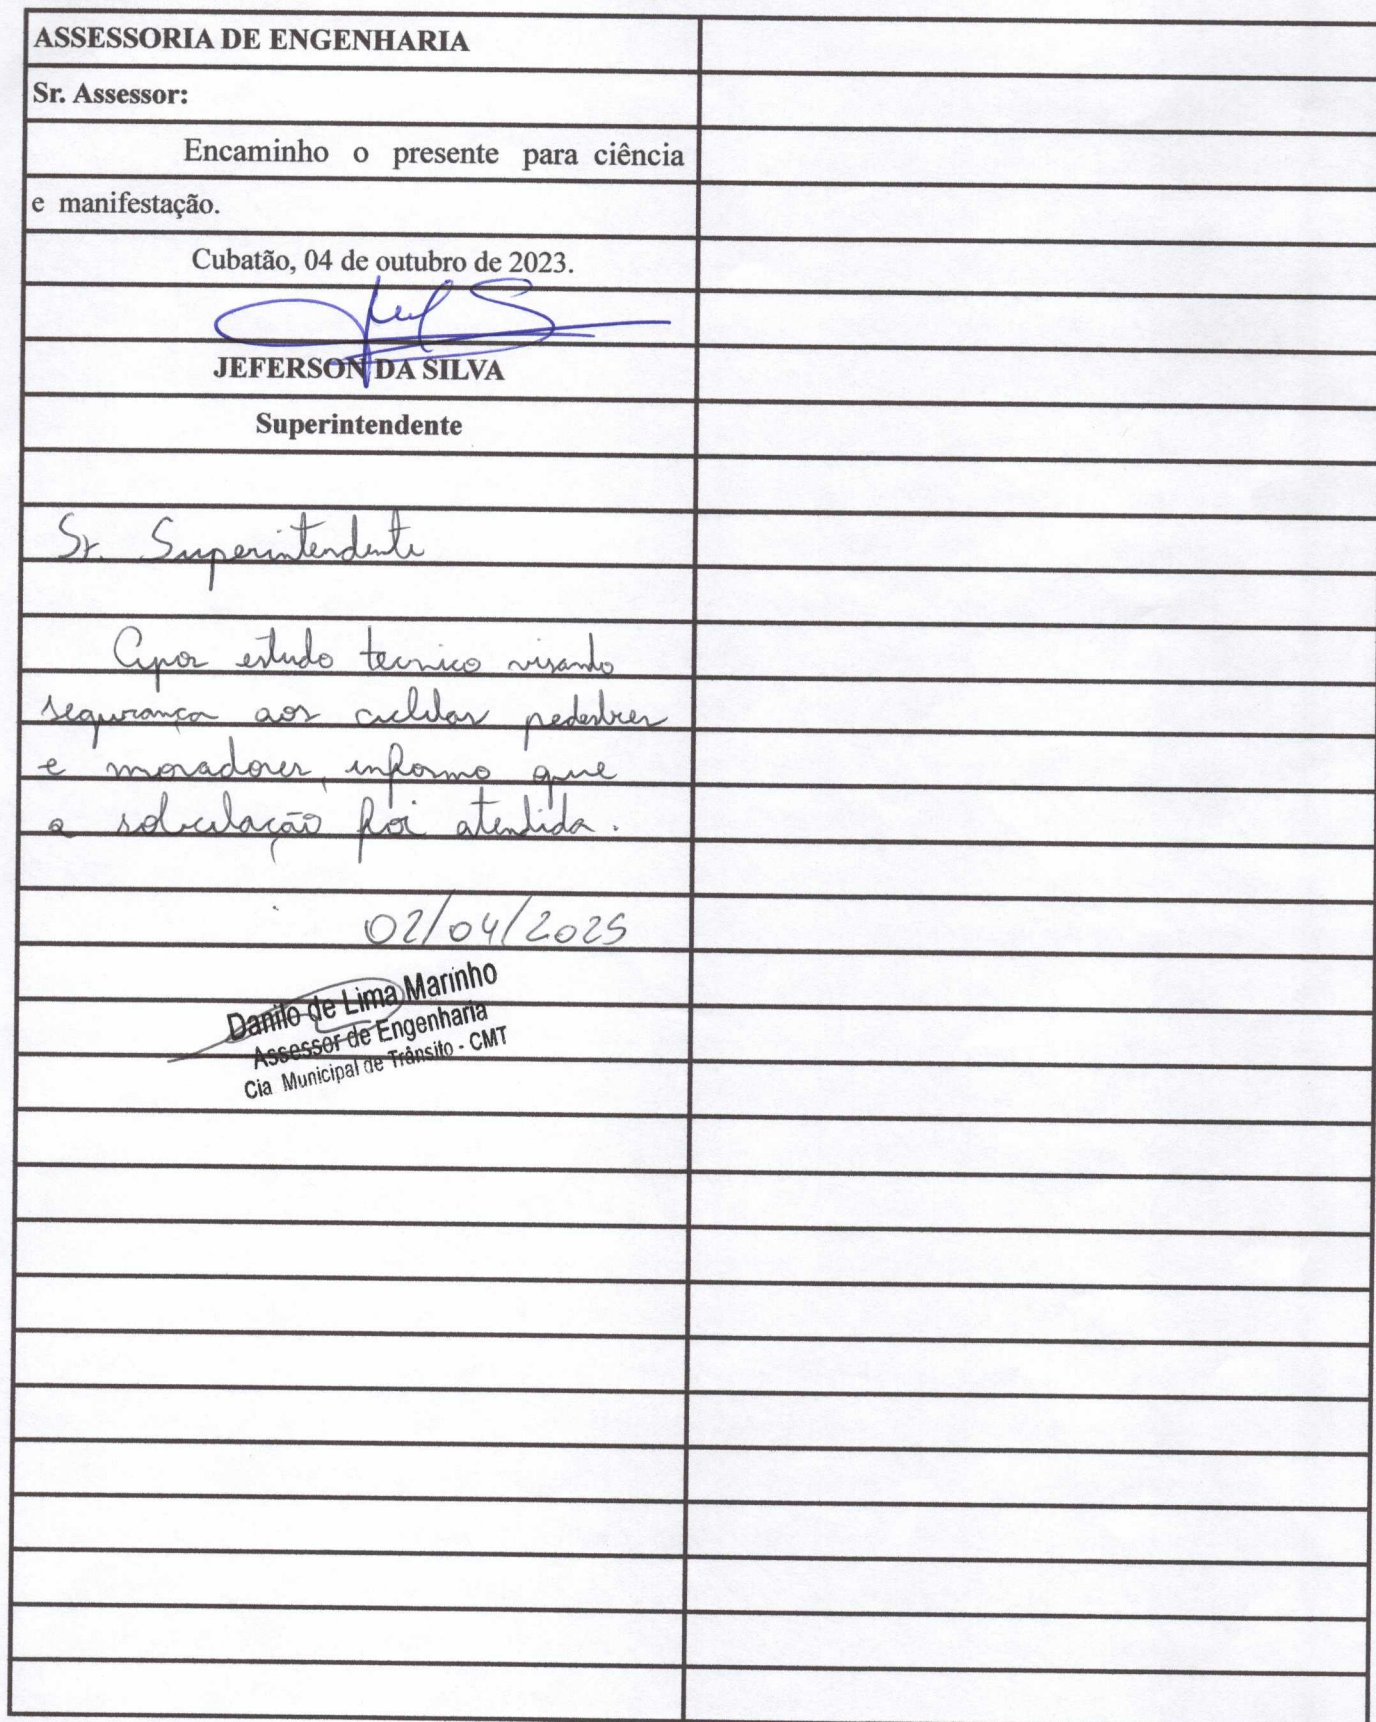 ASSESSORIA DE ENGENHARIA
Sr. Assessor:
Encaminho o presente para ciência
e manifestação.
Cubatão, 04 de outubro de 2023.
JEFERSON DA SILVA
Superintendente
Sr. Superintendente
estudo tecnico visando
segurança aos ciclistas pedestres
e moradores, informo que
a solicitação foi atendida.
02/04/2025
Danilo de Lima Marinho
Assessor de Engenharia
Cia Municipal de Trânsito - CMT